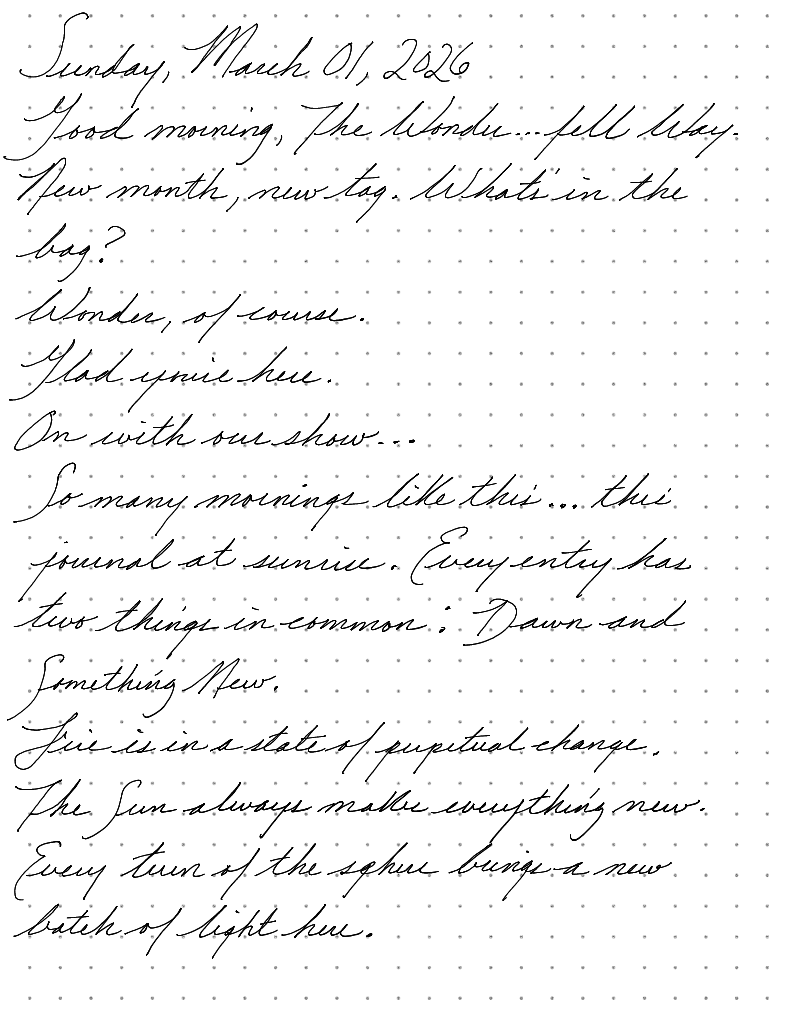 Sunday, March 01, 2026
Good morning, The Wonder... fell Way.
New month, new tag. What's in the
bag?
Wonder, of course.
Glad you're here.
On with our show...
So many mornings like this... this
journal at sunrise. Every entry has
two things in common: Dawn and
Something New.
Fire is in a state of perpetual change.
The Sun always makes everything new.
Every turn of the sphere brings a new
batch of light here.